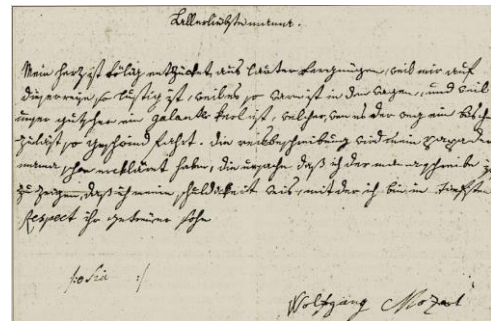 allerliebste mama.
Mein herz ist völig entzücket, aus lauter vergnügen, weil mir auf
dieser reise so lustig ist, weil es so warm ist in den wagen, und weil
unser gutscher ein galanter kerl ist, welcher, wen es der weg ein bischen
zuläst so geschwind fahrt. die reisbeschreibung wird mein papa der
mama schon erkläret haben, die ursache daß ich der mama schreibe ist
zu zeigen, daß ich meine schuldikeit weis, mit der ich bin in tieffsten
Respect ihr getreüer sohn
Wolfgang Mozart